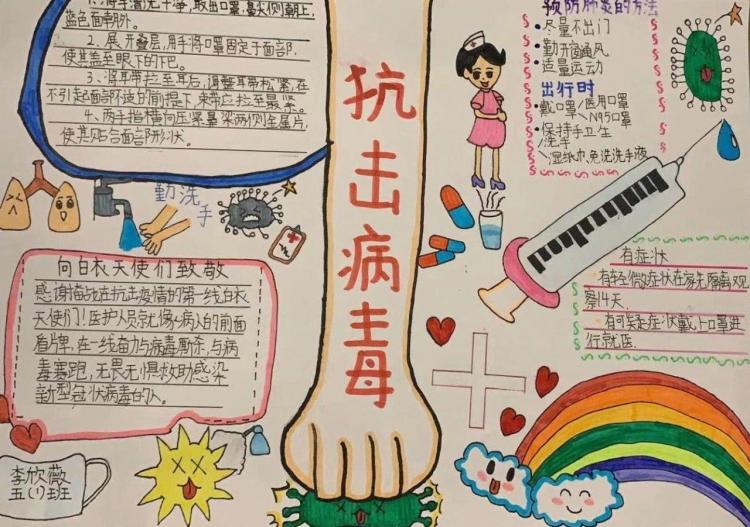 1.将手清洗干净,取出口罩,鼻夹侧朝上,
蓝色面朝外。
2、展开叠层,用手将口罩固定于面部,
使其盖至眼下的下巴。
3、将耳带拉至耳后,调整耳带松紧,在
不引起面部不适的前提下,束带应拉至最紧。
4、两手指横向压紧鼻梁两侧金属片,
使其贴合面部形状。
勤洗手
向白衣天使们致敬
感谢奋战在抗击疫情的第一线白衣
天使们!医护人员就像病人的前面
盾牌,在一线奋力与病毒厮杀,与病
毒赛跑,无畏无惧救助感染
新型冠状病毒的人。
李欣薇
五(1)班
抗击病毒
预防肺炎的方法
·尽量不出门
·勤开窗通风
·适量运动
出行时
戴口罩/医用口罩
\N95口罩
·保持手卫生
/洗手
\湿纸巾,免洗洗手液
有症状
·有轻微症状在家先隔离观
察14天
·有可疑症状戴上口罩进
行就医